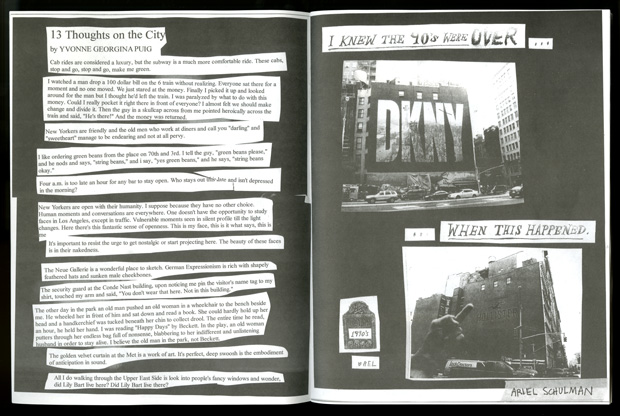 13 Thoughts on the City
by YVONNE GEORGINA PUIG
Cab rides are considered a luxury, but the subway is a much more comfortable ride. These cabs,
stop and go, stop and go, make me green.
I watched a man drop a 100 dollar bill on the 6 train without realizing. Everyone sat there for a
moment and no one moved. We just stared at the money. Finally I picked it up and looked
around for the man but I thought he'd left the train. I was paralyzed by what to do with this
money. Could I really pocket it right there in front of everyone? I almost felt we should make
change and divide it. Then the guy in a skullcap across from me pointed heroically across the
train and said, "He's there!" And the money was returned.
New Yorkers are friendly and the old men who work at diners and call you "darling" and
"sweetheart" manage to be endearing and not at all pervy.
I like ordering green beans from the place on 70th and 3rd. I tell the guy, "green beans please,"
and he nods and says, "string beans," and i say, "yes green beans," and he says, "string beans
okay."
Four a.m. is too late an hour for any bar to stay open. Who stays out this late and isn't depressed
in the morning?
New Yorkers are open with their humanity. I suppose because they have no other choice.
Human moments and conversations are everywhere. One doesn't have the opportunity to study
faces in Los Angeles, except in traffic. Vulnerable moments seen in silent profile till the light
changes. Here there's this fantastic sense of openness. This is my face, this is it what says, this is
me
It's important to resist the urge to get nostalgic or start projecting here. The beauty of these faces
is in their nakedness.
The Neue Gallerie is a wonderful place to sketch. German Expressionism is rich with shapely
feathered hats and sunken male cheekbones.
The security guard at the Conde Nast building, upon noticing me pin the visitor's name tag to my
shirt, touched my arm and said, "You don't wear that here. Not in this building."
The other day in the park an old man pushed an old woman in a wheelchair to the bench beside
me. He wheeled her in front of him and sat down and read a book. She could hardly hold up her
head and a handkerchief was tucked beneath her chin to collect drool. The entire time he read,
an hour, he held her hand. I was reading "Happy Days" by Beckett. In the play, an old woman
putters through her endless bag full of nonsense, blabbering to her indifferent and unlistening
husband in order to stay alive. I believe the old man in the park, not Beckett.
The golden velvet curtain at the Met is a work of art. It's perfect, deep swoosh is the embodiment
of anticipation of sound.
All I do walking through the Upper East Side is look into people's fancy windows and wonder,
did Lily Bart live here? Did Lily Bart live there?
I KNEW THE 90's WERE OVER ...
DKNY
... WHEN THIS HAPPENED.
1990's
ARIEL SCHULMAN